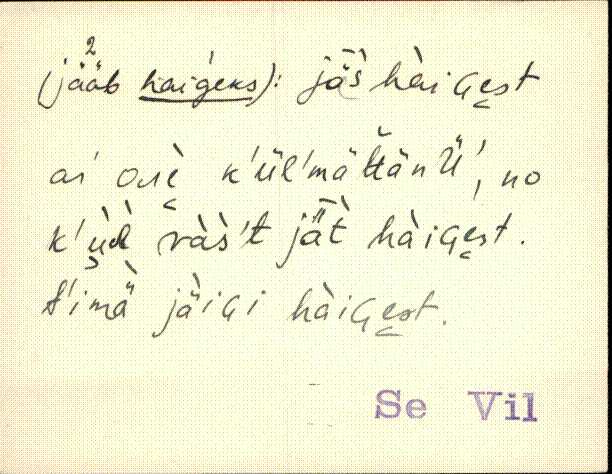 (jää²b hai̬geks): jäs̀ hàiGe̬st
ai ole̬ k'ül'mättänü', no
k'ùl̀ ràs't jät̀ hàiGe̬st.
t'imä jäiGi hàiGe̬st.
Se Vil